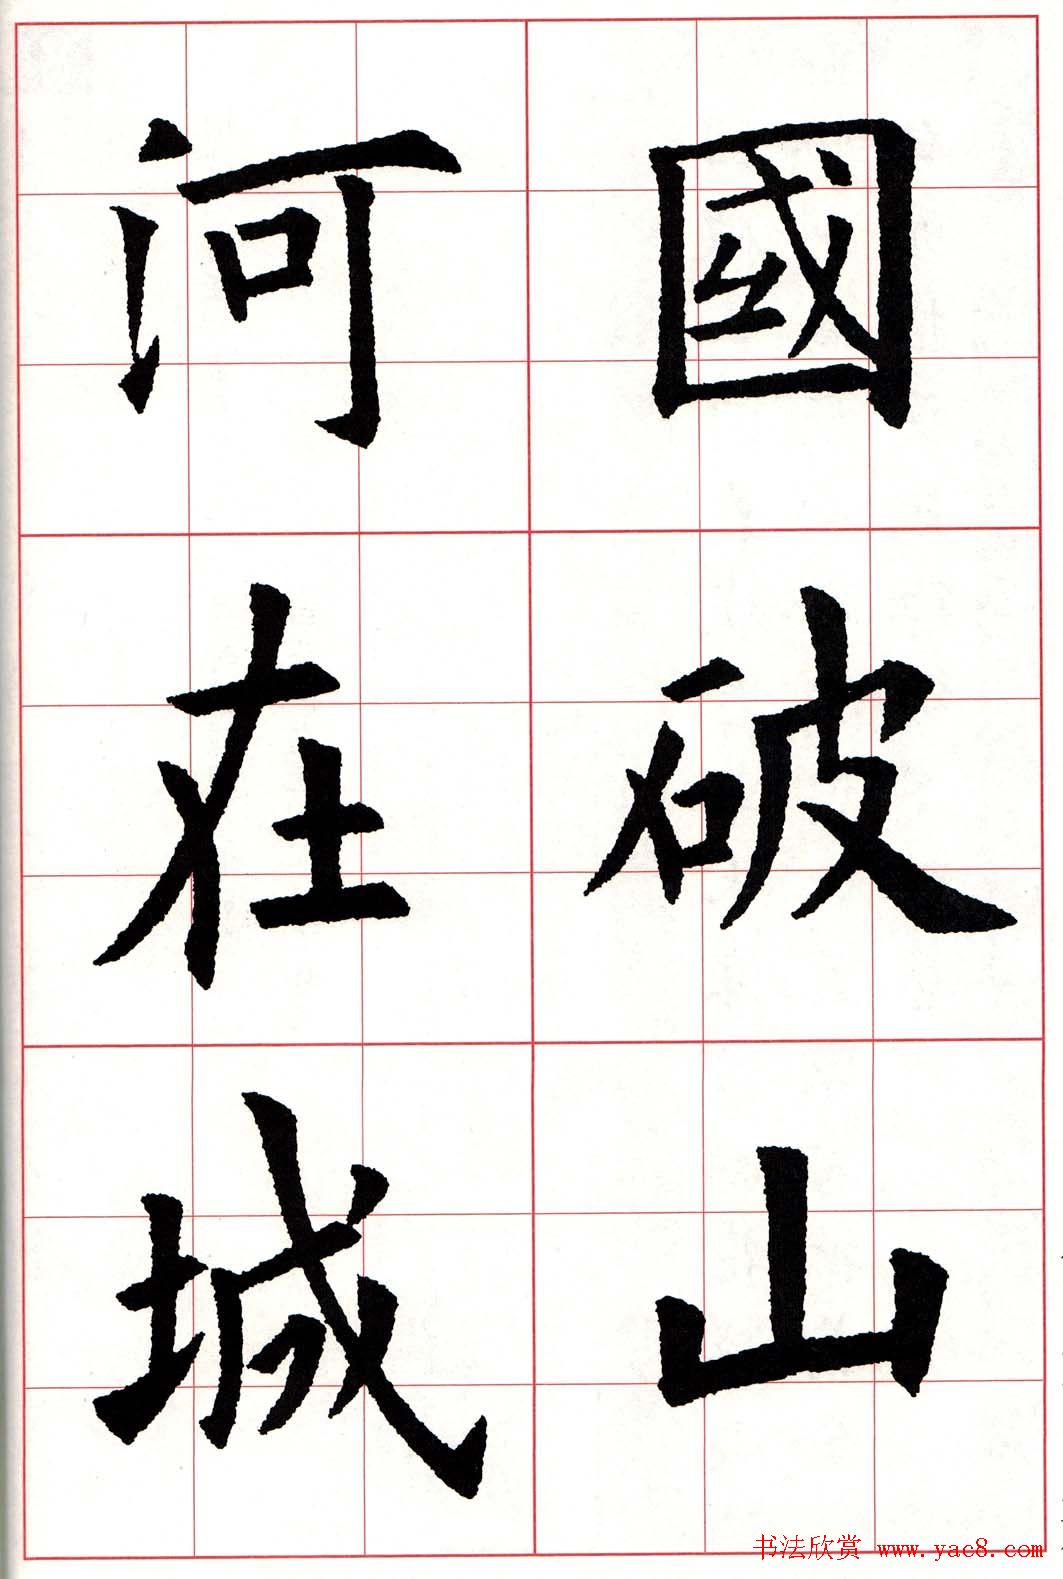 國破山
河在城
书法欣赏 www.yac8.com